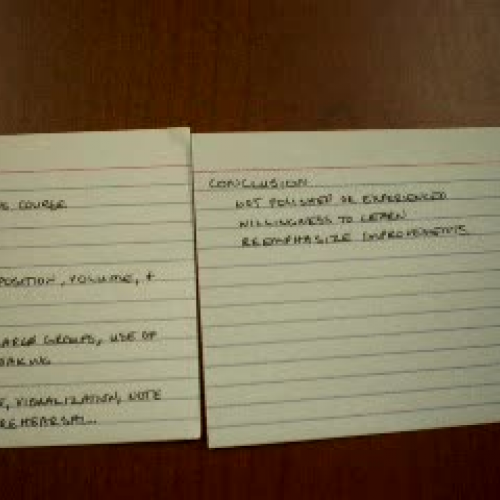 S COURSE
POSITION, VOLUME, +
LARGE GROUPS, USE OF
EAKING
, VISUALIZATION, NOTE
REHEARSAL...
CONCLUSION
NOT POLISHED OR EXPERIENCED
WILLINGNESS TO LEARN
REEMPHASIZE IMPROVEMENTS